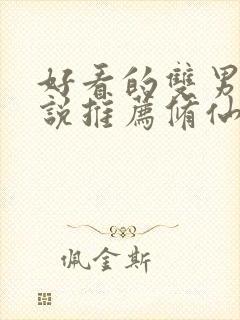 好看的雙男
說推薦脩仙
佩金斯